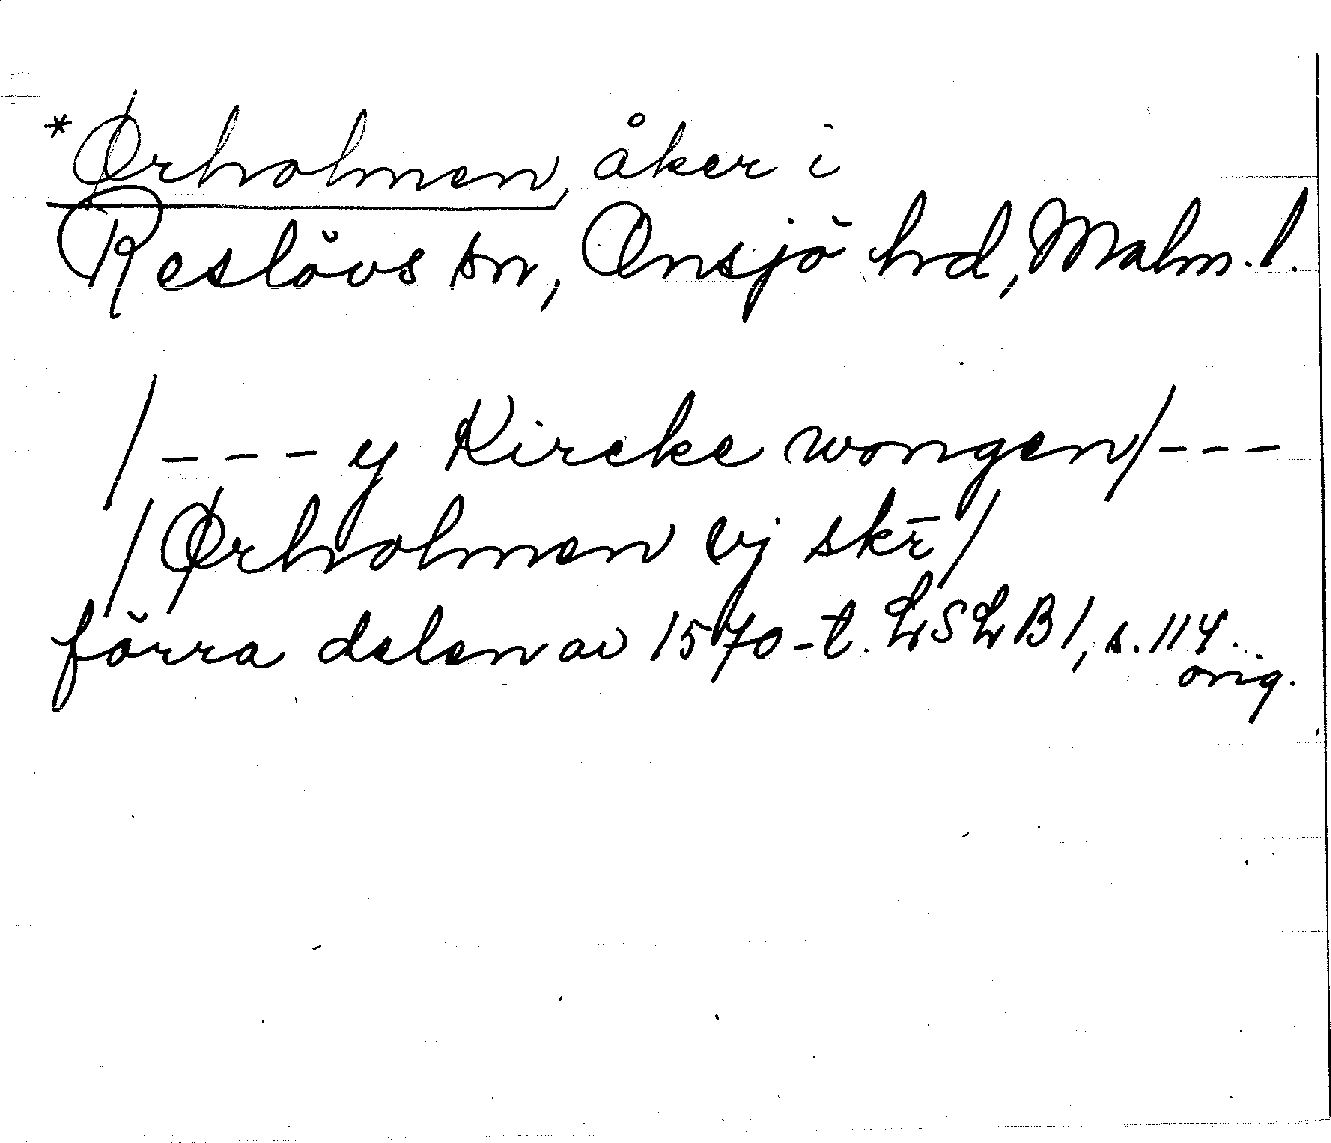 *Ørholmen, åker i
Reslövs sn, Onsjö hd, Malm. l.
/---y Kircke wongen/---
/Ørholmen vj skr̄/
förra delen av 1570-t. LSLB 1, s. 114.
orig.